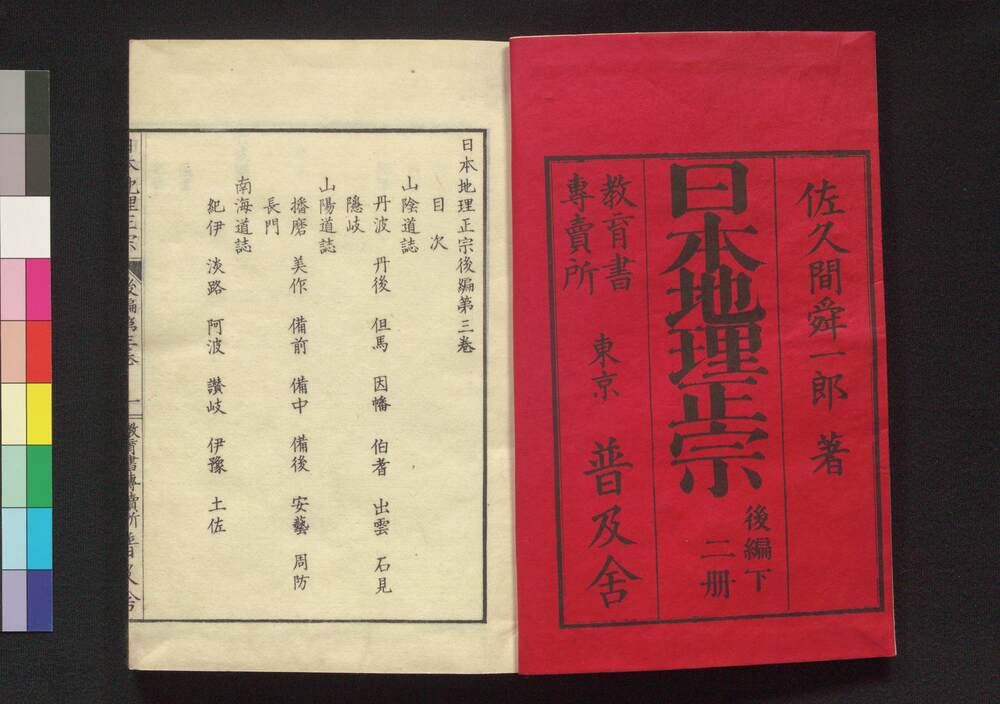 佐久間舜一郎 著
日本地理正宗 後編下 二册
教育書
專賣所
東京 普及舍
日本地理正宗後編第三卷
目次
山陰道誌
丹波 丹後 但馬 因幡 伯耆 出雲 石見
隱岐
山陽道誌
播磨 美作 備前 備中 備後 安藝 周防
長門
南海道誌
紀伊 淡路 阿波 讃岐 伊豫 土佐
日本地理正宗 後編第三卷 一 教育書專賣所普及舍